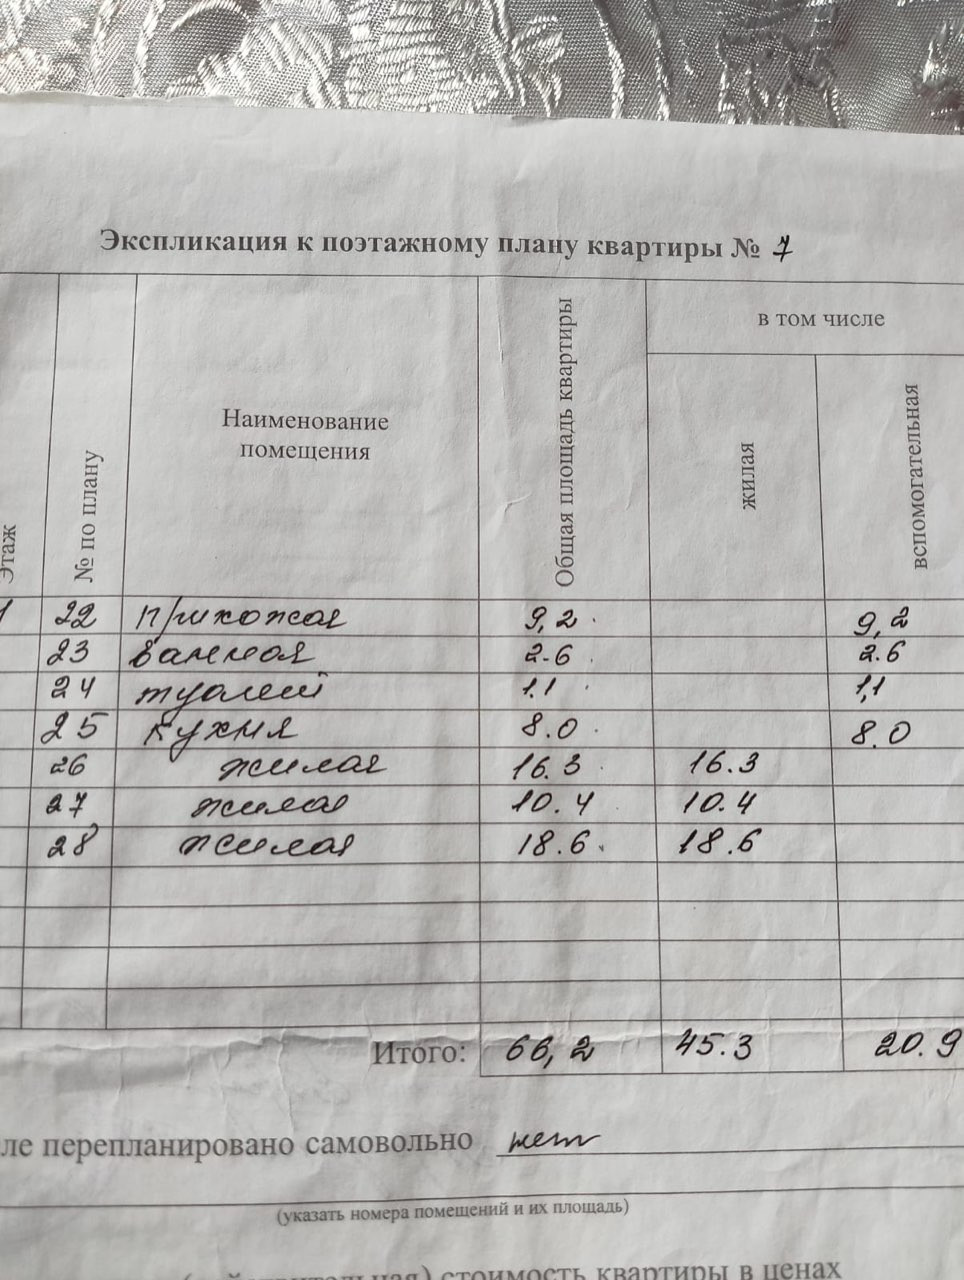 Экспликация к поэтажному плану квартиры № 7
Этаж
№ по плану
Наименование
помещения
Общая площадь квартиры
в том числе
жилая
вспомогательная
1 22 прихожая 9,2 9,2
23 ванная 2.6 2.6
24 туалет 1.1 1,1
25 кухня 8.0 8.0
26 жилая 16.3 16.3
27 жилая 10.4 10.4
28 жилая 18.6 18.6
Итого: 66,2 45.3 20.9
ле перепланировано самовольно нет
(указать номера помещений и их площадь)
стоимость квартиры в ценах